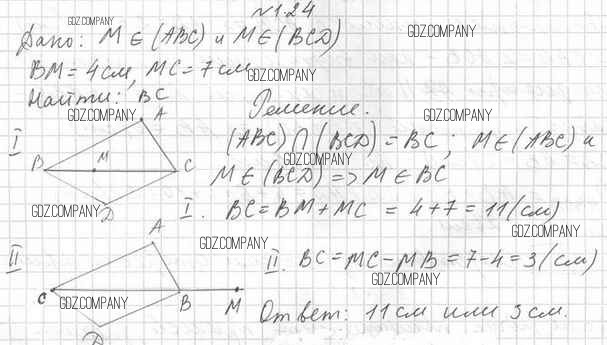 №1.24
Дано: M ∈ (ABC) и M ∈ (BCD)
BM = 4 см, MC = 7 см
Найти: BC
Решение.
I
A
B
M
C
D
(ABC) ∩ (BCD) = BC; M ∈ (ABC) и
M ∈ (BCD) => M ∈ BC
I. BC = BM + MC = 4 + 7 = 11 (см)
II
A
C
B
M
D
II. BC = MC - MB = 7 - 4 = 3 (см)
Ответ: 11 см или 3 см.
GDZ.COMPANY
GDZ.COMPANY
GDZ.COMPANY
GDZ.COMPANY
GDZ.COMPANY
GDZ.COMPANY
GDZ.COMPANY
GDZ.COMPANY
GDZ.COMPANY
GDZ.COMPANY
GDZ.COMPANY